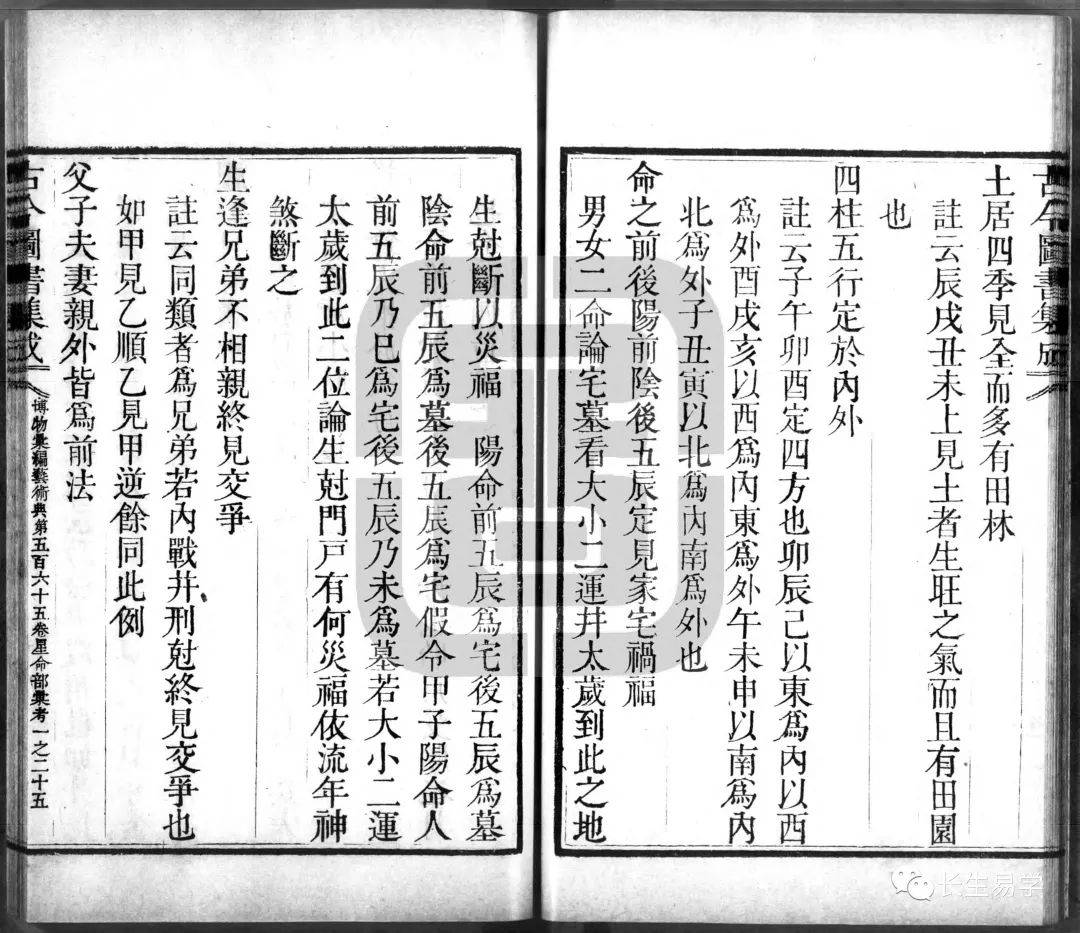 古今圖書集成
土居四季見全而多有田林
註云辰戌丑未上見土者生旺之氣而且有田園
也
四柱五行定於內外
註云子午卯酉定四方也卯辰巳以東為內以西
為外酉戌亥以西為內東為外午未申以南為內
北為外子丑寅以北為內南為外也
命之前後陽前陰後五辰定見家宅禍福
男女二命論宅墓看大小二運幷太歲到此之地
生尅斷以災福　陽命前五辰為宅後五辰為墓
陰命前五辰為墓後五辰為宅假令甲子陽命人
前五辰乃巳為宅後五辰乃未為墓若大小二運
太歲到此二位論生尅門戸有何災福依流年神
煞斷之
生逢兄弟不相親終見交爭
註云同類者為兄弟若內戰幷刑尅終見交爭也
如甲見乙順乙見甲逆餘同此例
父子夫妻親外皆為前法
古今圖書集成
博物彙編藝術典第五百六十五卷星命部彙考一之二十五
长生易学